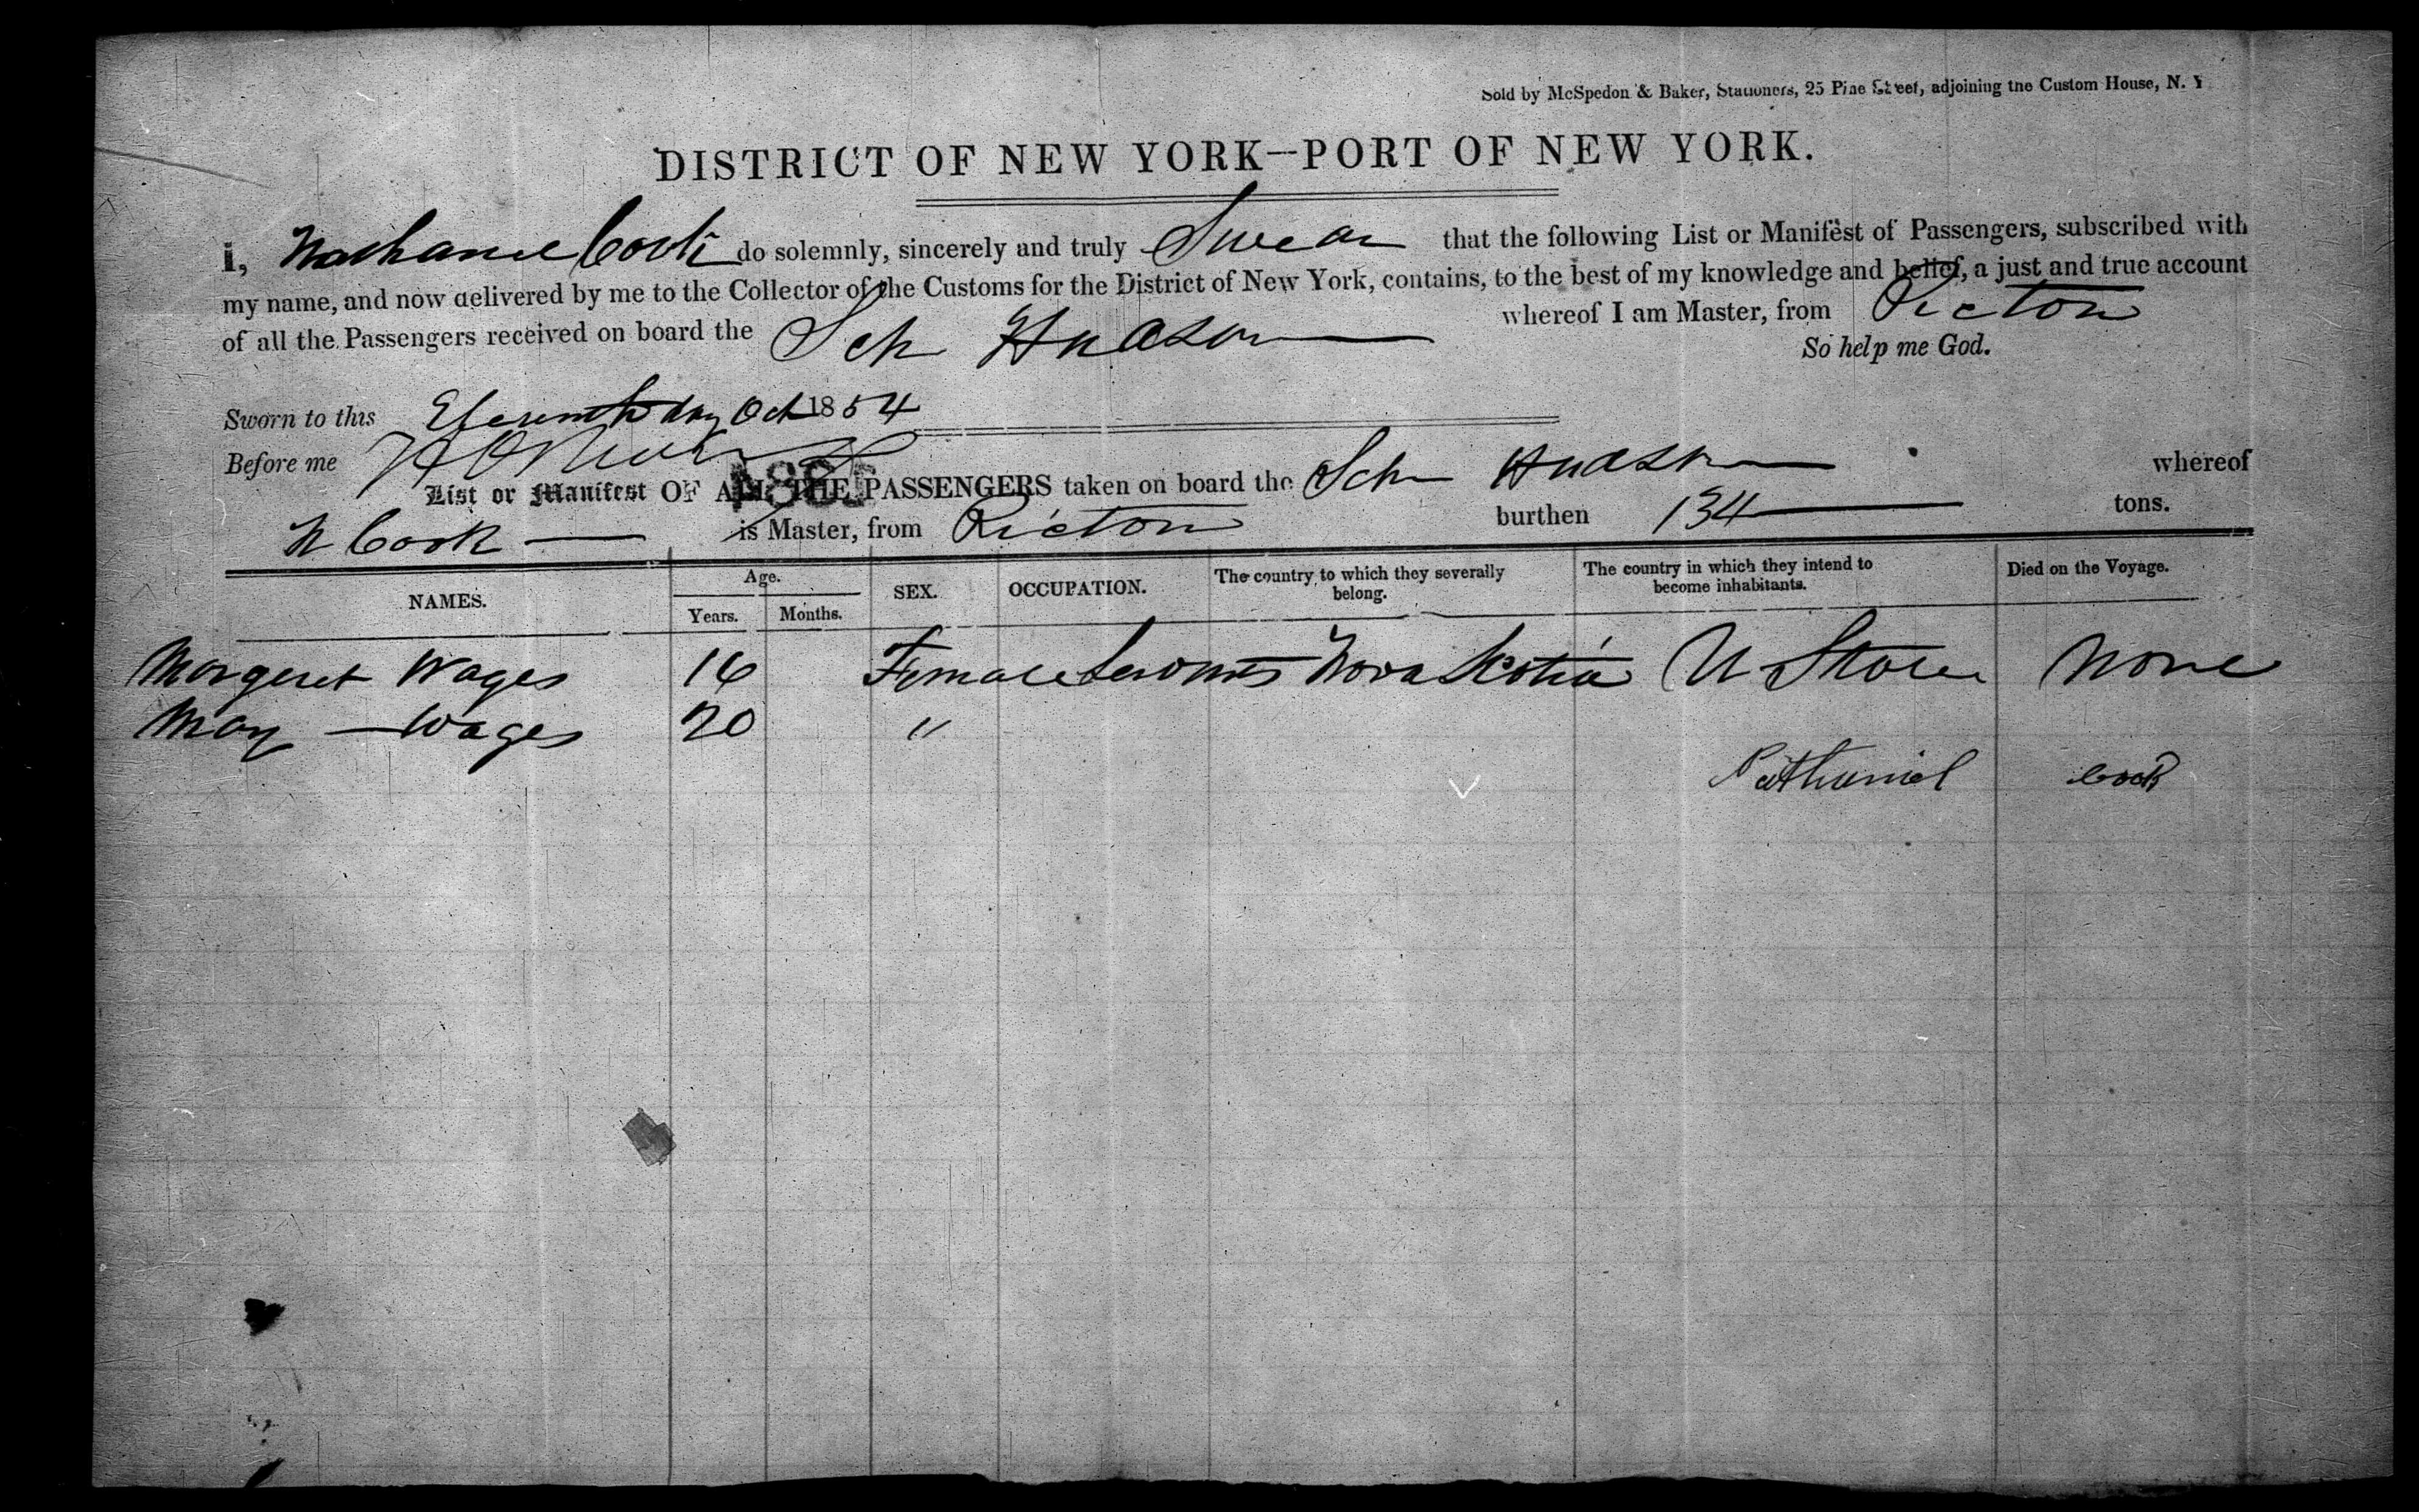 Sold by McSpedon & Baker, Stationers, 25 Pine Street, adjoining the Custom House, N. Y
DISTRICT OF NEW YORK—PORT OF NEW YORK.
I, Nathaniel Cook do solemnly, sincerely and truly Swear that the following List or Manifest of Passengers, subscribed with
my name, and now delivered by me to the Collector of the Customs for the District of New York, contains, to the best of my knowledge and belief, a just and true account
of all the Passengers received on board the Sch Hudson whereof I am Master, from Picton
So help me God.
Sworn to this Eleventh day Oct 1854
Before me
List or Manifest OF ALL THE PASSENGERS taken on board the Sch Hudson whereof
N Cook is Master, from Picton burthen 134 tons.
NAMES. Age. Years. Months. SEX. OCCUPATION. The country to which they severally belong. The country in which they intend to become inhabitants. Died on the Voyage.
Margeret Wages 16 Female Nova Scotia U States None
May — Wages 20 "
Nathaniel Cook